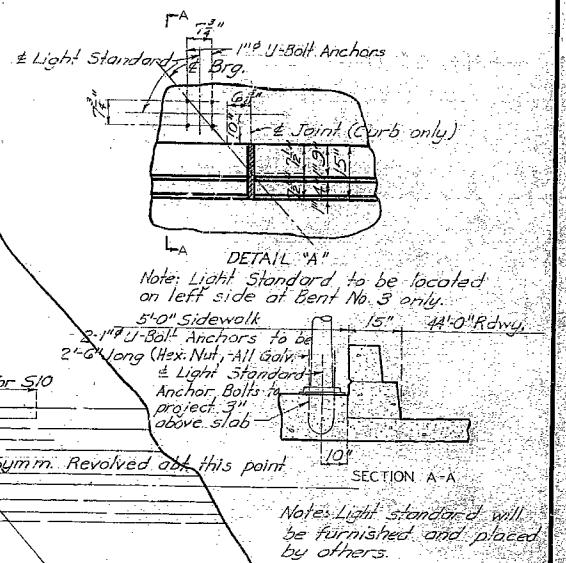 A
7¾"
1"φ U-Bolt Anchors
℄ Light Standard
℄ Brg.
7¾"
10"
℄ Joint (Curb only)
7½" 9" 15"
7½"
A
DETAIL "A"
Note: Light Standard to be located
on left side at Bent No. 3 only.
5'-0" Sidewalk 15" 44'-0" Rdwy.
2-1"φ U-Bolt Anchors to be
2'-6" long (Hex. Nut, All Galv.
℄ Light Standard
Anchor Bolts to
project 3"
above slab
for S10
Symm. Revolved abt this point
10"
SECTION A-A
Note: Light standard will
be furnished and placed
by others.